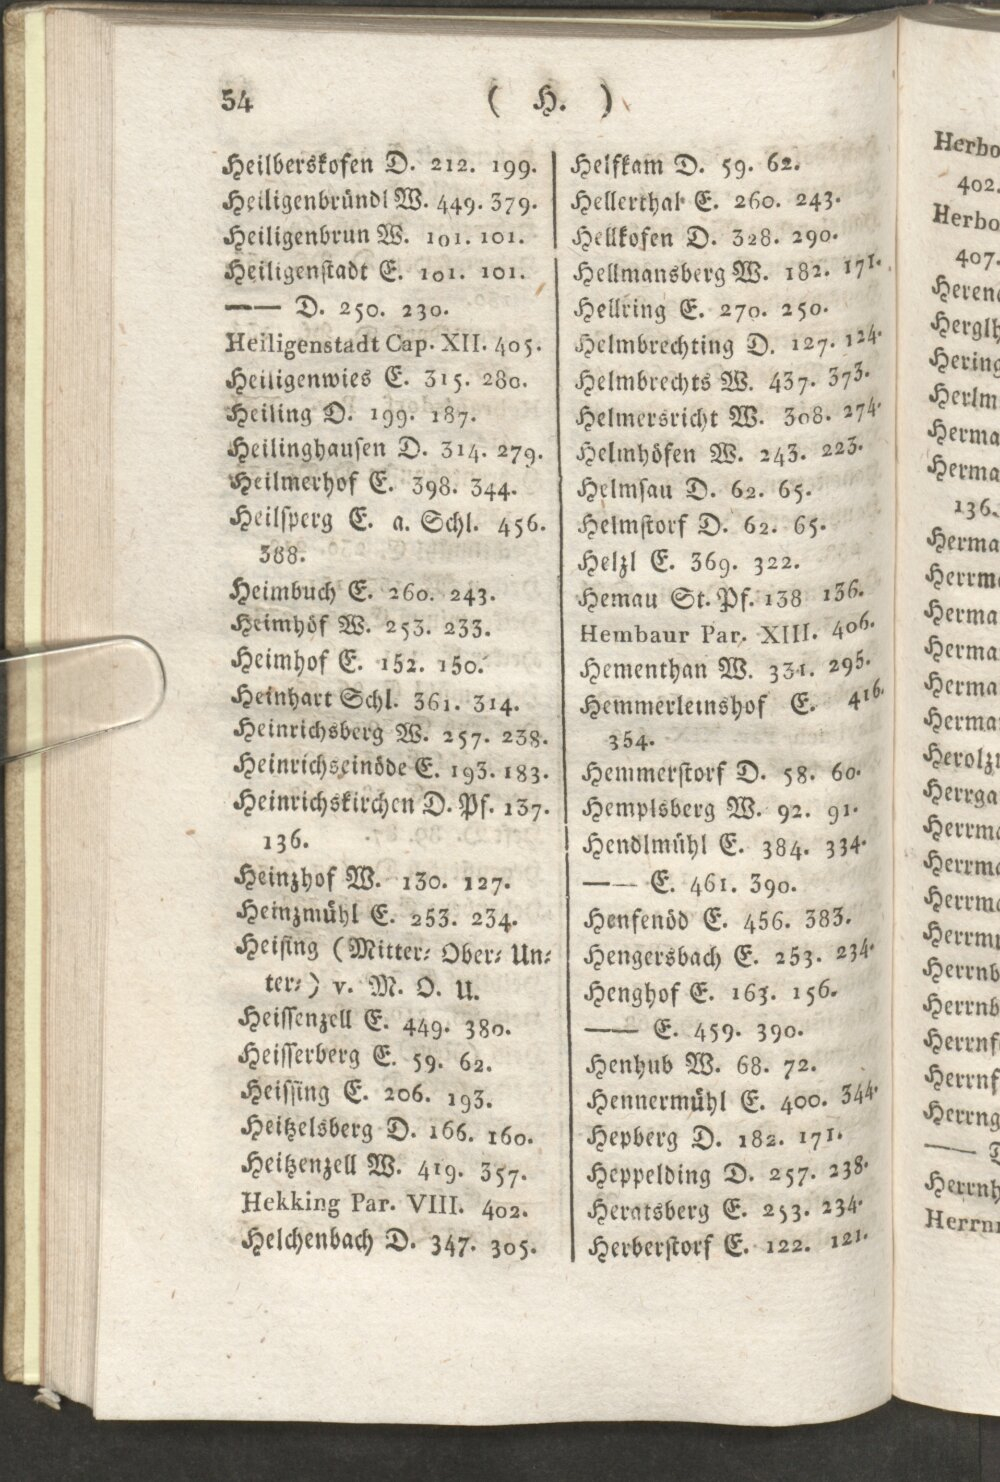 54 ( H. )
Heilberskofen D. 212. 199.
Heiligenbründl W. 449. 379.
Heiligenbrun W. 101. 101.
Heiligenstadt E. 101. 101.
—— D. 250. 230.
Heiligenstadt Cap. XII. 405.
Heiligenwies E. 315. 280.
Heiling D. 199. 187.
Heilinghausen D. 314. 279.
Heilmerhof E. 398. 344.
Heilsperg E. a. Schl. 456.
388.
Heimbuch E. 260. 243.
Heimhöf W. 253. 233.
Heimhof E. 152. 150.
Heinhart Schl. 361. 314.
Heinrichsberg W. 257. 238.
Heinrichseinöde E. 193. 183.
Heinrichskirchen D. Pf. 137.
136.
Heinzhof W. 130. 127.
Heinzmühl E. 253. 234.
Heising (Mitter- Ober- Un-
ter-) v. M. O. U.
Heissenzell E. 449. 380.
Heisserberg E. 59. 62.
Heissing E. 206. 193.
Heitzelsberg D. 166. 160.
Heitzenzell W. 419. 357.
Hekking Par. VIII. 402.
Helchenbach D. 347. 305.
Helfkam D. 59. 62.
Hellerthal E. 260. 243.
Hellkofen D. 328. 290.
Hellmansberg W. 182. 171.
Hellring E. 270. 250.
Helmbrechting D. 127. 124.
Helmbrechts W. 437. 373.
Helmersricht W. 308. 274.
Helmhöfen W. 243. 223.
Helmsau D. 62. 65.
Helmstorf D. 62. 65.
Helzl E. 369. 322.
Hemau St. Pf. 138 136.
Hembaur Par. XIII. 406.
Hementhan W. 331. 295.
Hemmerleinshof E. 416.
354.
Hemmerstorf D. 58. 60.
Hemplsberg W. 92. 91.
Hendlmühl E. 384. 334.
—— E. 461. 390.
Henfenöd E. 456. 383.
Hengersbach E. 253. 234.
Henghof E. 163. 156.
—— E. 459. 390.
Henhub W. 68. 72.
Hennermühl E. 400. 344.
Hepberg D. 182. 171.
Heppelding D. 257. 238.
Heratsberg E. 253. 234.
Herberstorf E. 122. 121.
Herbo
402.
Herbo
407.
Heren
Herglh
Hering
Herlm
Herma
Herma
136.
Herma
Herrm
Herma
Herma
Herma
Herma
Herolz
Herrga
Herrm
Herrm
Herrm
Herrm
Herrnb
Herrnb
Herrnf
Herrnf
Herrng
——
Herrnh
Herrn